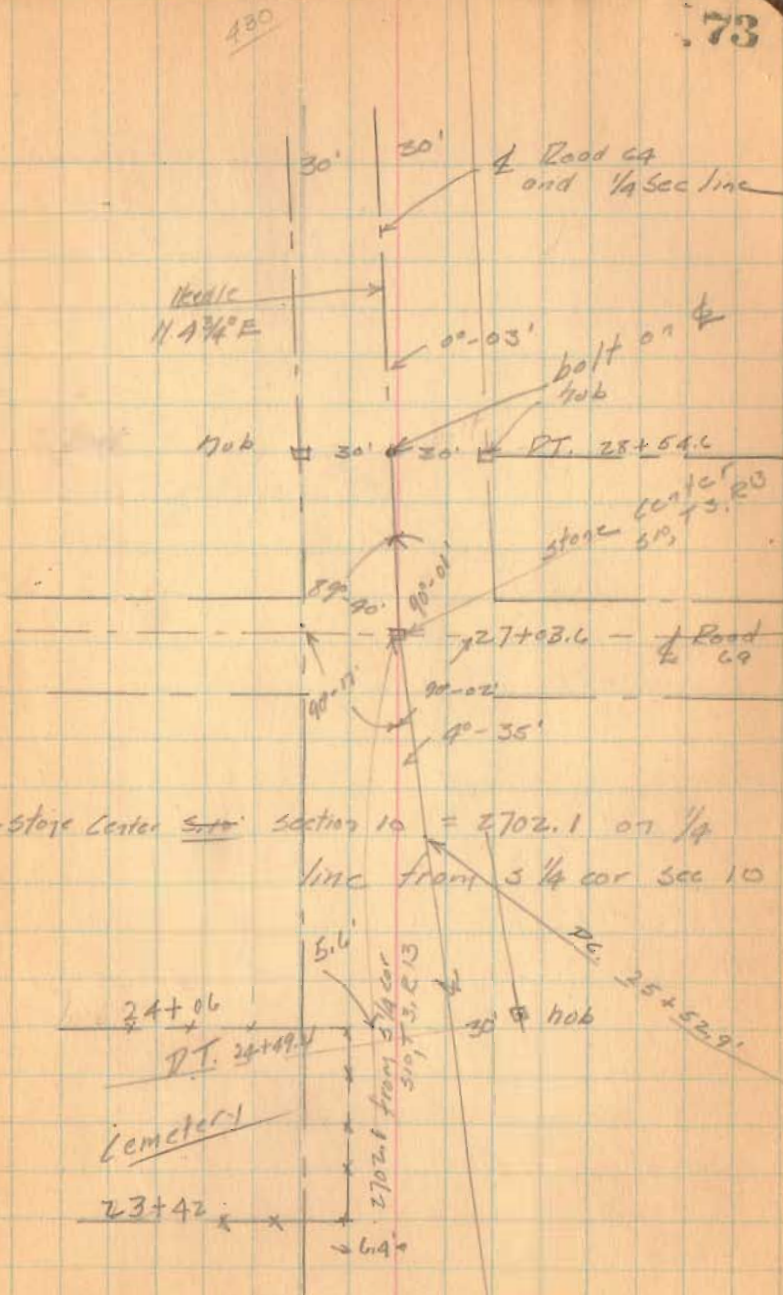 430
73
30'
30'
℄ Road 64
and 1/4 Sec line
Needle
N. 4 3/4° E
0°-03'
bolt on ℄
hub
hub
30'
30'
P.T. 28+54.6
center
S10, T3, R13
stone
89°-40'
90°-01'
27+03.6
℄ Road
69
90°-17'
90°-02'
4°-35'
Stone Center S.10 section 10 = 2702.1 on 1/4
line from S 1/4 cor sec 10
5.6'
P.C. 25+52.9
24+06
30'
hub
P.T. 24+49.4
℄
2702.1 from S 1/4 cor
S10, T3, R13
Cemetery
23+42
6.4'